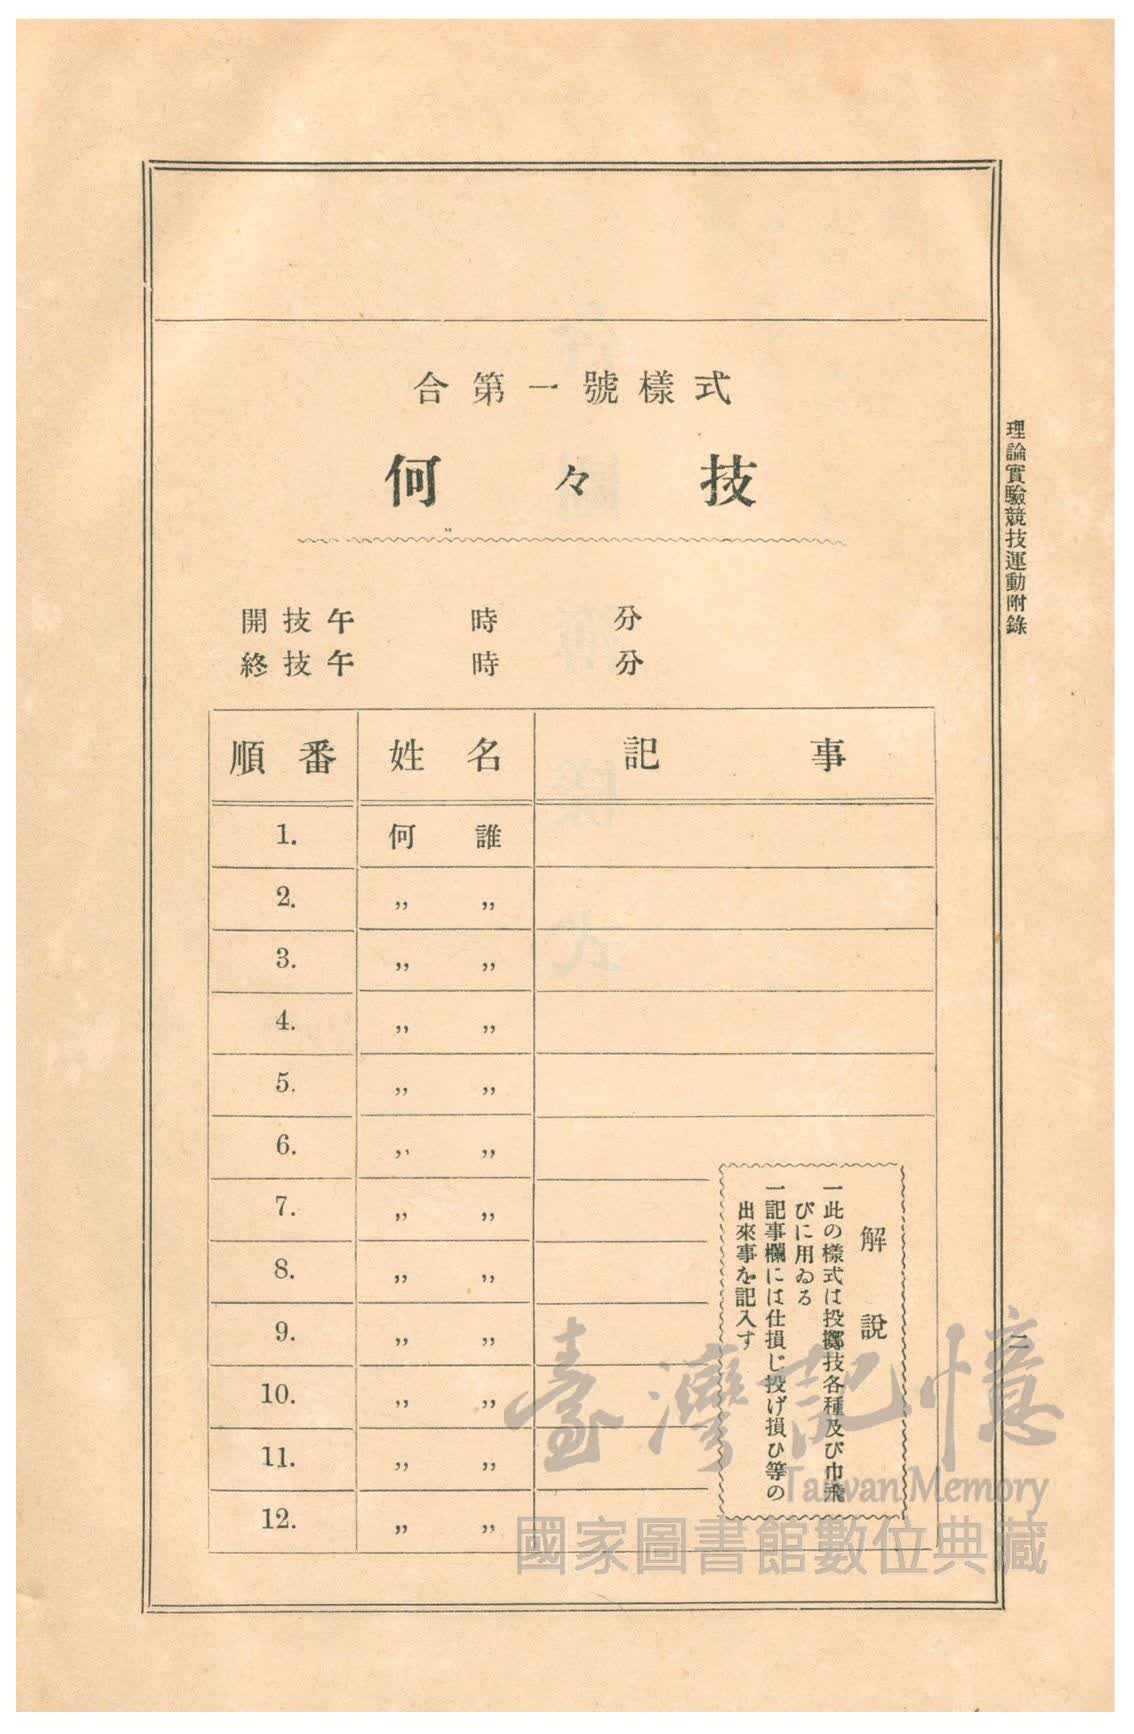 理論實驗競技運動附錄
二
合第一號樣式
何々技
開技午 時 分
終技午 時 分
順番 姓名 記事
1. 何誰
2. 〃 〃
3. 〃 〃
4. 〃 〃
5. 〃 〃
6. 〃 〃
7. 〃 〃
8. 〃 〃
9. 〃 〃
10. 〃 〃
11. 〃 〃
12. 〃 〃
解說
一此の樣式は投擲技各種及び巾飛
びに用ゐる
一記事欄には仕損じ投げ損ひ等の
出來事を記入す
臺灣記憶
Taiwan Memory
國家圖書館數位典藏